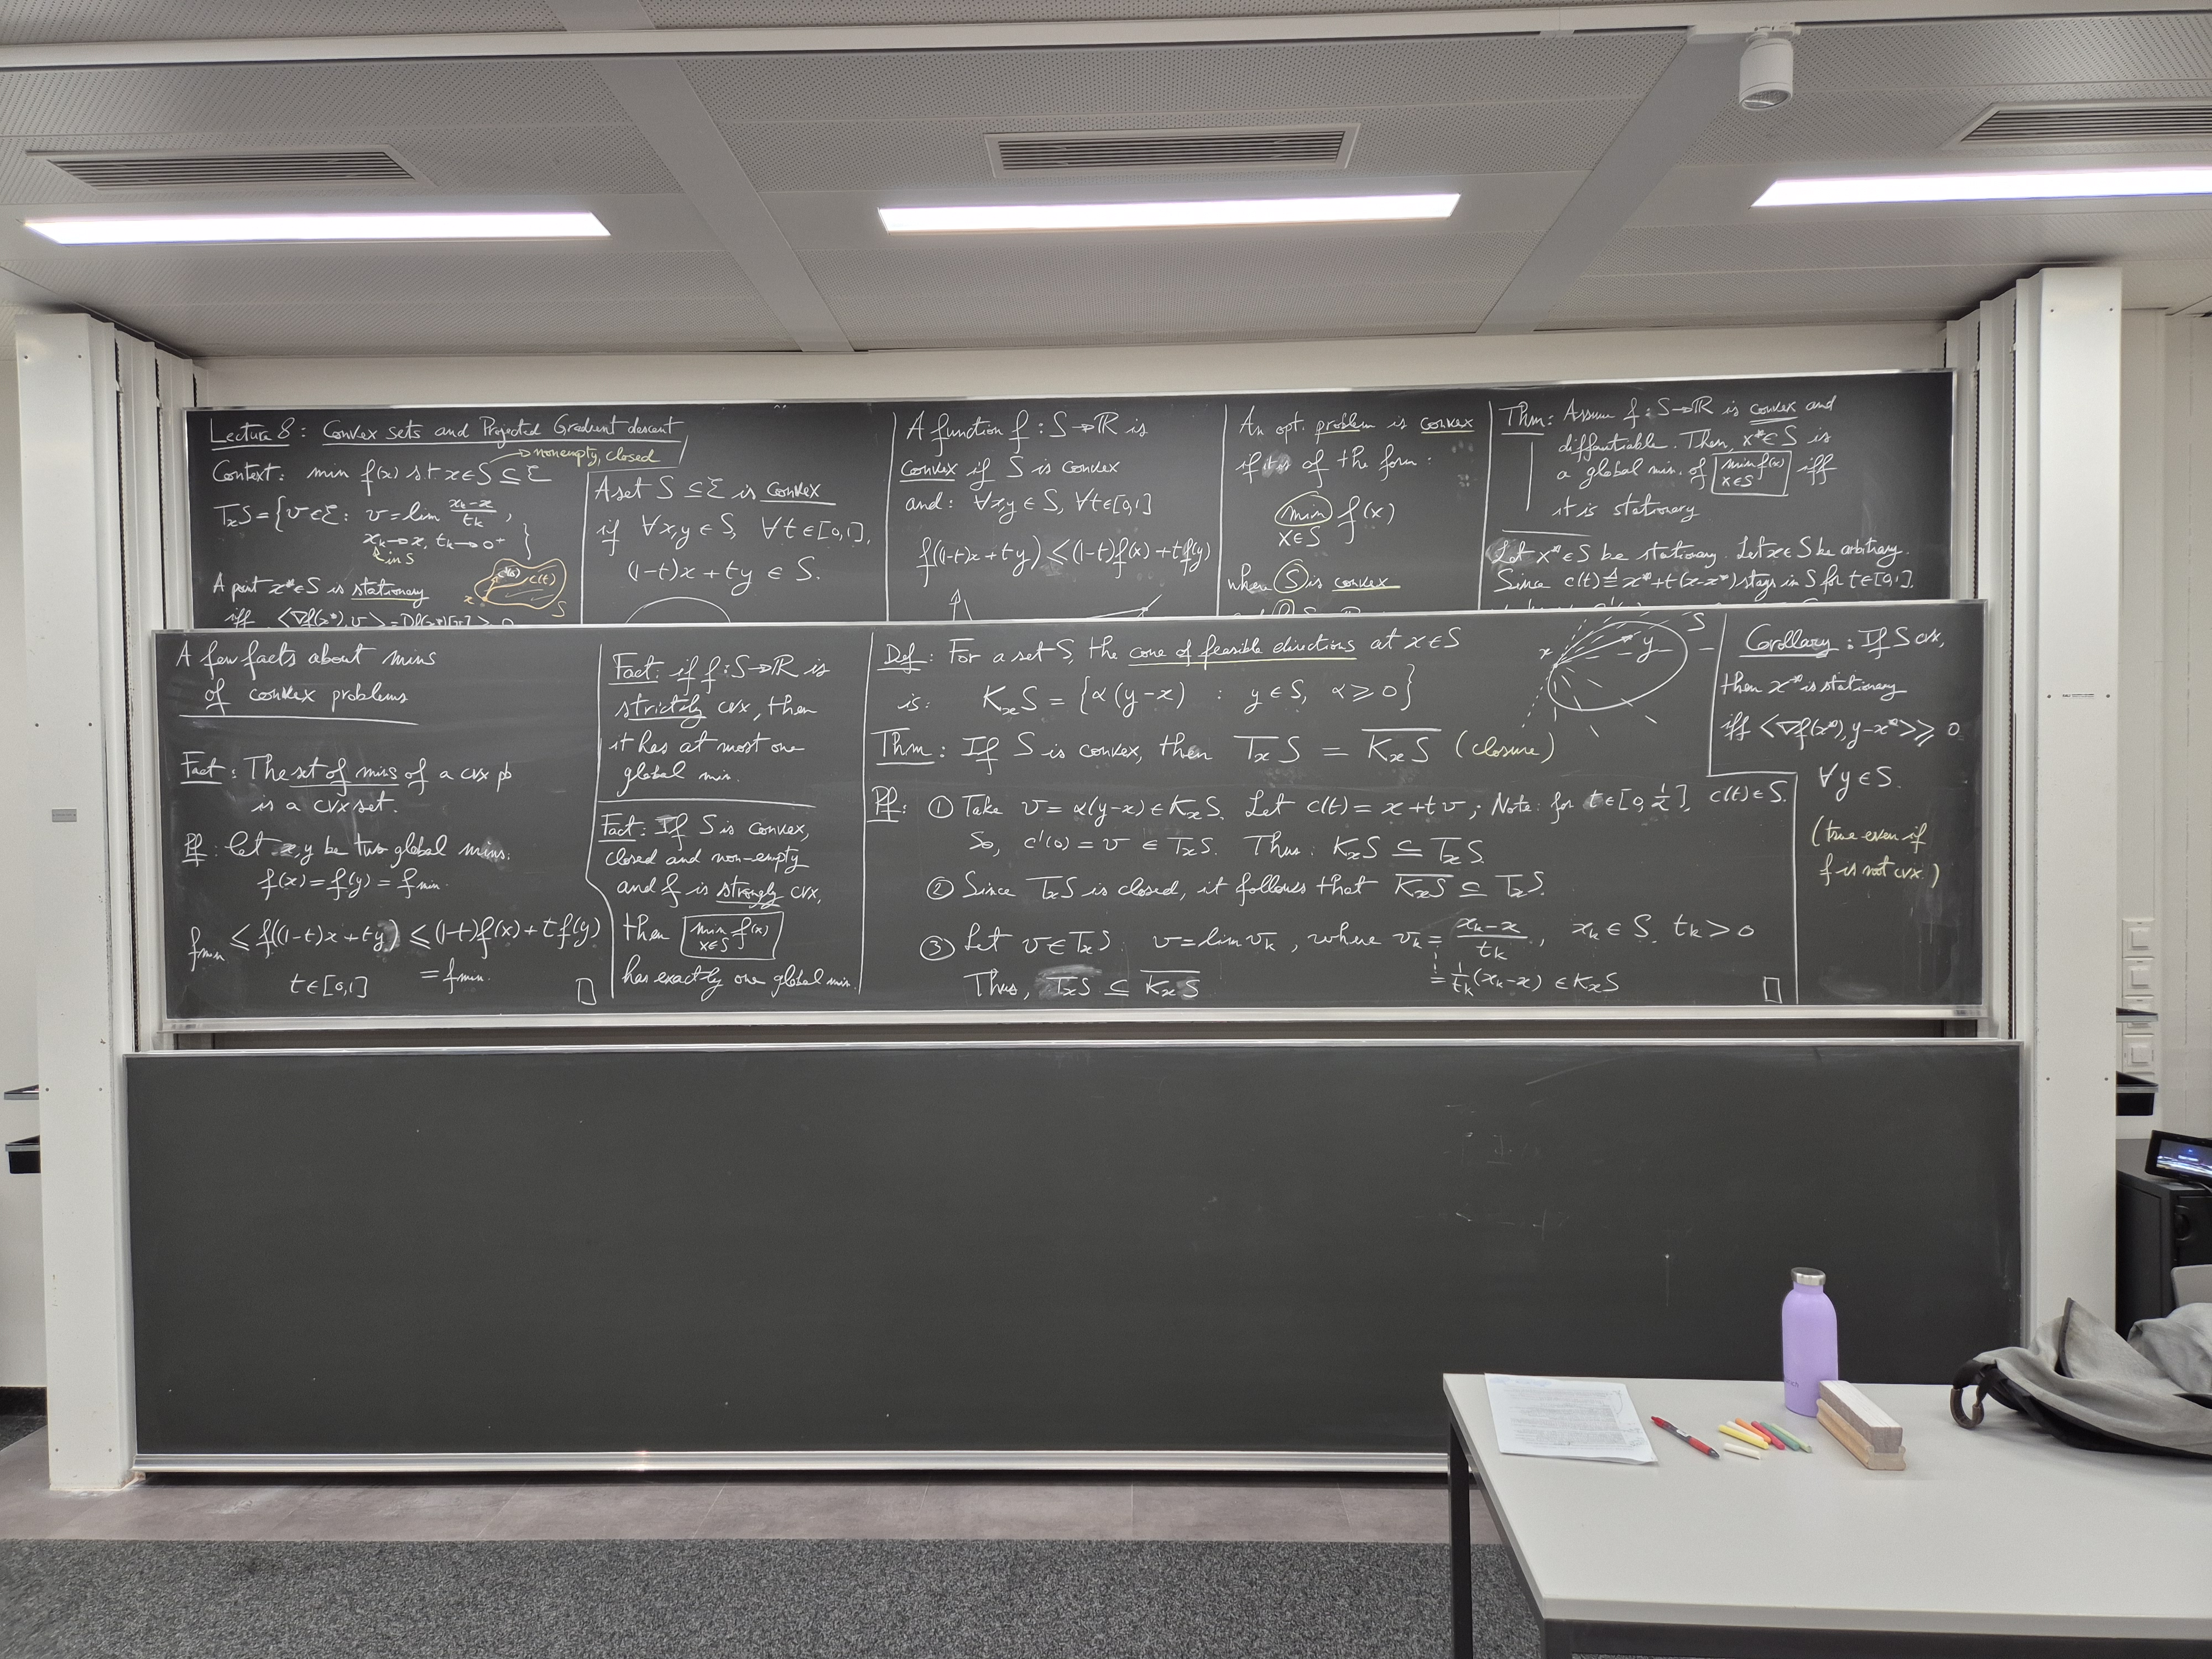 Lecture 8: Convex sets and Projected Gradient descent
Context: min f(x) s.t. x∈S ⊆ ℰ
→ nonempty, closed
TₓS = {v∈ℰ : v = lim (xₖ-x)/tₖ,
xₖ→x, tₖ→0⁺ }
in S
A point x*∈S is stationary
iff ⟨∇f(x*), v⟩ = Df(x*)[v] ≥ 0
x c(t) S
A set S ⊆ ℰ is convex
if ∀x,y ∈ S, ∀t∈[0,1],
(1-t)x + ty ∈ S.
A function f : S→ℝ is
convex if S is convex
and: ∀x,y∈S, ∀t∈[0,1]
f((1-t)x+ty) ≤ (1-t)f(x)+tf(y)
An opt. problem is convex
if it is of the form:
min f(x)
x∈S
where S is convex
Thm: Assume f : S→ℝ is convex and
diffentiable. Then, x*∈S is
a global min. of min f(x) iff
x∈S
it is stationary
Let x*∈S be stationary. Let x∈S be arbitrary.
Since c(t) ≜ x*+t(x-x*) stays in S for t∈[0,1],
A few facts about mins
of convex problems
Fact: The set of mins of a cvx pb
is a cvx set.
Pf: let x,y be two global mins:
f(x)=f(y)=fmin.
fmin ≤ f((1-t)x+ty) ≤ (1-t)f(x)+tf(y)
t∈[0,1] = fmin. □
Fact: if f : S→ℝ is
strictly cvx, then
it has at most one
global min.
Fact: If S is convex,
closed and non-empty
and f is strongly cvx,
then min f(x)
x∈S
has exactly one global min.
Def: For a set S, the cone of feasible directions at x∈S
is: KₓS = {α(y-x) : y∈S, α≥0}
x y S
Thm: If S is convex, then TₓS = K̅ₓS̅ (closure)
Pf: ① Take v = α(y-x) ∈ KₓS. Let c(t) = x+tv; Note: for t∈[0,1/α], c(t)∈S.
So, c'(0) = v ∈ TₓS. Thus: KₓS ⊆ TₓS
② Since TₓS is closed, it follows that K̅ₓS̅ ⊆ TₓS.
③ Let v∈TₓS: v = lim vₖ, where vₖ = (xₖ-x)/tₖ, xₖ∈S, tₖ>0
= 1/tₖ (xₖ-x) ∈ KₓS
Thus, TₓS ⊆ K̅ₓS̅ □
Corollary: If S cvx,
then x* is stationary
iff ⟨∇f(x*), y-x*⟩ ≥ 0
∀y∈S.
(true even if
f is not cvx.)